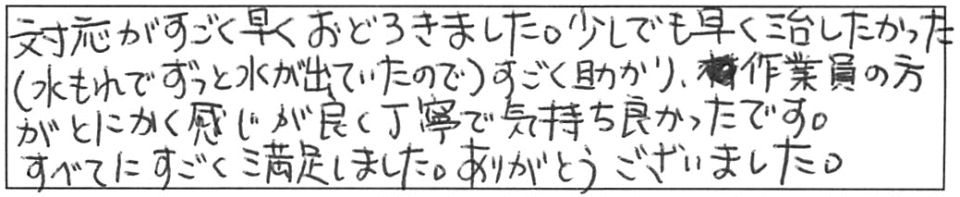 対応がすごく早くおどろきました。少しでも早く治したかった
(水もれでずっと水が出ていたので)すごく助かり、作業員の方
がとにかく感じが良く丁寧で気持ち良かったです。
すべてにすごく満足しました。ありがとうございました。